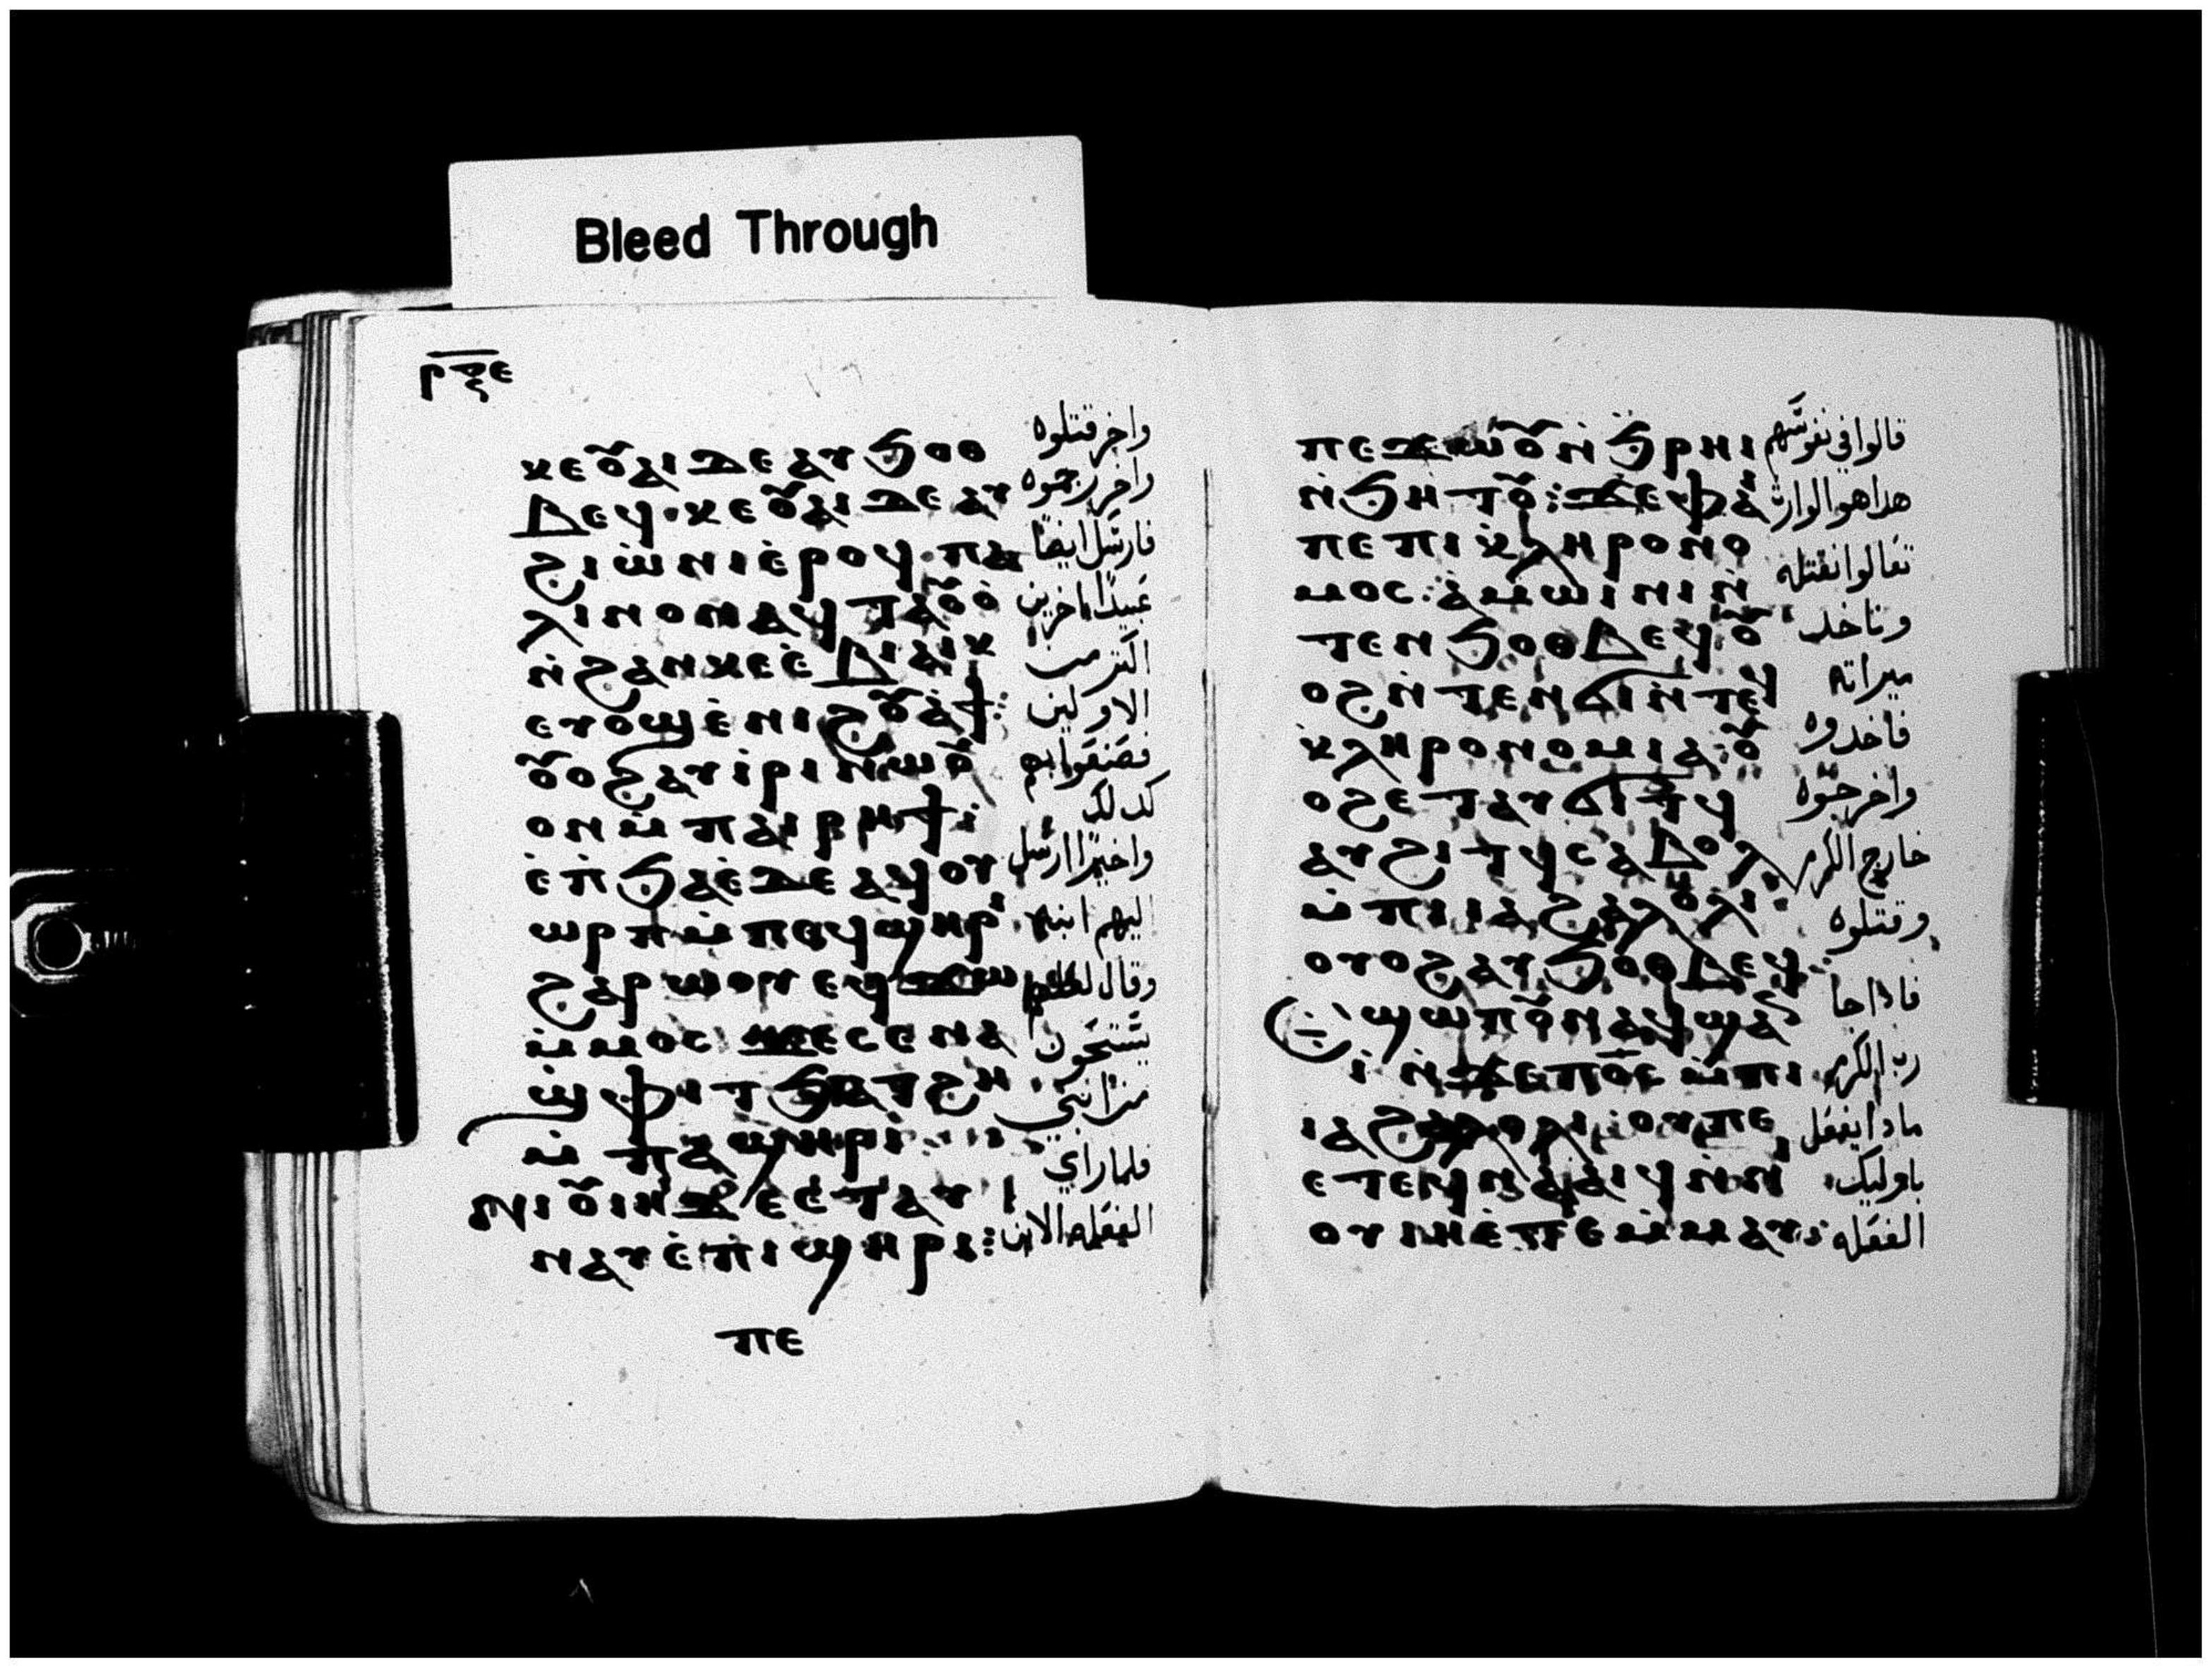 Bleed Through
ⲣⲝⲉ
ⲕⲉⲟⲩⲁⲓ ⲇⲉ ⲁⲩϧⲟⲑ
ⲃⲉϥ. ⲕⲉⲟⲩⲁⲓ ⲇⲉ ⲁⲩ
ϩⲓⲱⲛⲓ ⲉ̇ⲣⲟϥ. ⲡⲁ
ⲗⲓⲛ ⲟⲛ ⲁϥⲧⲁⲟⲩⲟ̇
ⲛ̇ϩⲁⲛⲕⲉⲉ̇ⲃⲓⲁⲓⲕ
ⲉⲩⲟϣ ⲉ̇ⲛⲓϩⲟⲩⲁ̇ϯ:
ⲟⲩⲟϩ ⲁⲩⲓ̇ⲣⲓ ⲛⲱⲟⲩ
ⲟⲛ ⲙ̇ⲡⲁⲓⲣⲏϯ:
ⲉ̇ⲡ̇ϧⲁⲉ̇ ⲇⲉ ⲁϥⲟⲩ
ⲱⲣⲡ ⲙ̇ⲡⲉϥϣⲏⲣⲓ
ϩⲁⲣⲱⲟⲩ ⲉϥϫⲱ
ⲙ̇ⲙⲟⲥ ϫⲉ ⲥⲉⲛⲁ
ϣ̇ⲫⲓⲧ ϧⲁⲧϩⲏ
ⲙ̇ⲡⲁϣⲏⲣⲓ
ⲛⲓⲟⲩⲓⲏ ⲇⲉ ⲉ̇ⲧⲁⲩ
ⲛⲁⲩ ⲉ̇ⲡⲓϣⲏⲣⲓ:
ⲡⲉ
واخر قتلوه
واخر رجموه
فارسل ايضًا
عبيدًا اخرين
اكتر من
الاولين
فصنعوا بهم
كدلك
واخيرًا ارسل
اليهم ابنه
وقال لعلهم
يستحون
من ابني
فلما راي
الفعله الابن
ⲡⲉϫⲱⲟⲩ ⲛ̇ϧⲣⲏⲓ
ⲛ̇ϧⲏⲧⲟⲩ: ϫⲉ ⲫⲁⲓ
ⲡⲉ ⲡⲓⲕ̇ⲗⲏⲣⲟⲛⲟ
ⲙⲟⲥ: ⲁ̇ⲙⲱⲓⲛⲓ ⲛ̇
ⲧⲉⲛϧⲟⲑⲃⲉϥ ⲟⲩ
ⲟϩ ⲛ̇ⲧⲉⲛϭⲓ ⲛ̇ⲧⲉϥ
ⲕ̇ⲗⲏⲣⲟⲛⲟⲙⲓⲁ: ⲟⲩ
ⲟϩ ⲉⲧⲁⲩϭⲓⲧϥ
ⲁⲩϩⲓⲧϥ ⲥⲁⲃⲟⲗ
ⲙ̇ⲡⲓⲓⲁϩⲁⲗⲟⲗⲓ
ⲟⲩⲟϩ ⲁⲩϧⲟⲑⲃⲉϥ
ϣⲱⲡ ⲟⲩⲛ ⲁϥϣⲁⲛ
ⲓ̇ ⲛ̇ϫⲉ ⲡⲟⲥ̅ ⲙ̇ⲡⲓ
ⲓⲁϩⲁⲗⲟⲗⲓ: ⲟⲩ ⲡⲉ
ⲉⲧⲉϥⲛⲁⲁⲓϥ ⲛ̇ⲛⲓ
ⲟⲩⲓⲏ ⲉ̇ⲧⲉⲙ̇ⲙⲁⲩ:
قالوا في نفوسهم
هدا هو الوارث
تعالوا نقتله
وناخد
ميراته
فاخدوه
واخرجوه
خارج الكرم
وقتلوه
فادا جا
رب الكرم
مادا يفعل
باوليك
الفعله